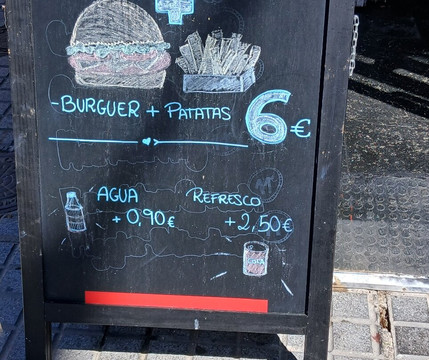 -BURGUER + PATATAS 6€
AGUA
+ 0,90€
REFRESCO
+2,50€
COLA